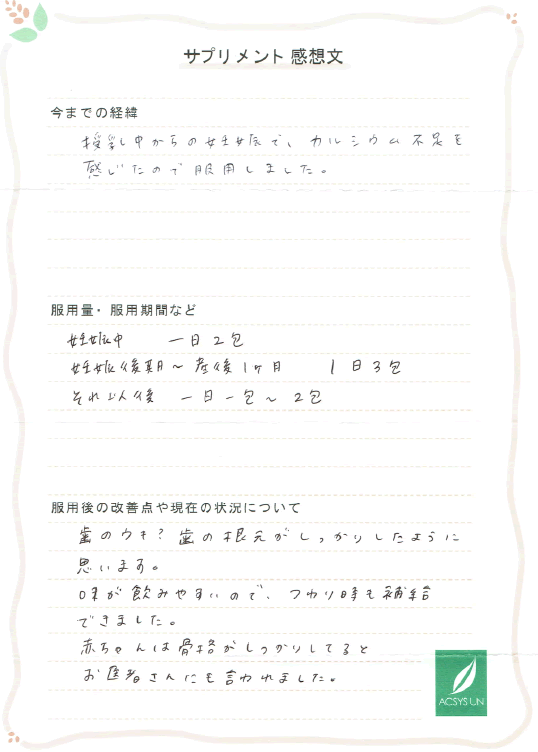 サプリメント 感想文
今までの経緯
授乳し中からの妊娠で、カルシウム不足を
感じたので服用しました。
服用量・服用期間など
妊娠中 一日2包
妊娠後期〜産後1ヶ月 1日3包
それ以後 一日一包〜2包
服用後の改善点や現在の状況について
歯のウキ?歯の根元がしっかりしたように
思います。
味が飲みやすいので、つわり時も補給
できました。
赤ちゃんは骨格がしっかりしてると
お医者さんにも言われました。
ACSYS UN